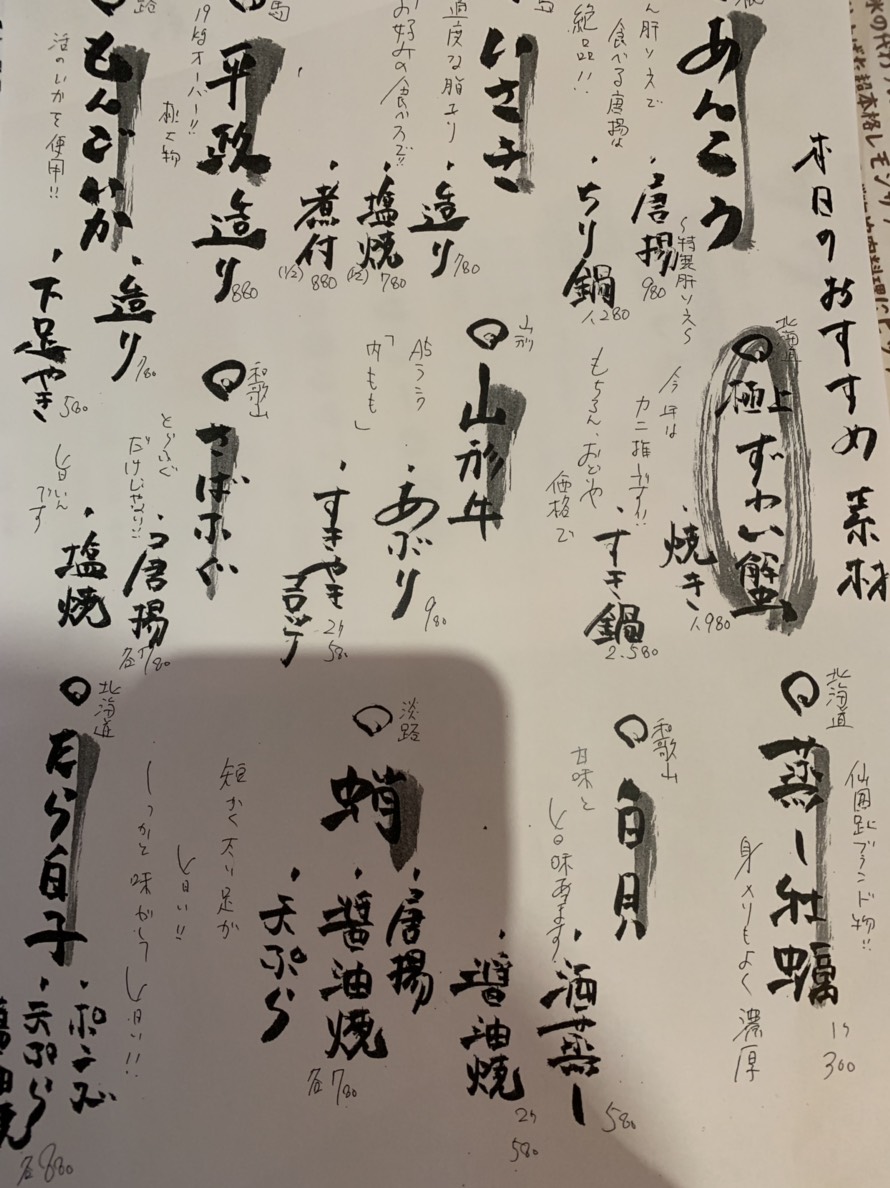 本日のおすすめ素材
あんこう
ん肝ソえで
食べる唐揚は
絶品!!
・唐揚
〜特製肝ソえ〜
980
・ちり鍋
1人280
いさき
適度な脂まり
お好みの食べ方で!!
・造り
780
・塩焼
(1/2) 780
・煮付
(1/2) 880
平政
19kgオーバー!!
極上物
造り
880
もんごいか
活のいかを使用!!
・造り
780
・下足やき
580
北海道
極上ずわい蟹
今年は
カニ推です!!
もちろん、おどろきや
価格で
・焼き
1人980
・すき鍋
2.580
山形
山形牛
A5ランク
「内もも」
・あぶり
980
・すきやきコロッケ
2ケ
580
和歌山
さばふぐ
とらふぐ
だけじゃない!!
旨いん
です
・唐揚
・塩焼
各780
北海道
蒸し牡蠣
仙鳳趾ブランド物!!
身入りもよく濃厚
1ケ
300
和歌山
白貝
甘味と
旨味あます
・酒蒸し
580
・醤油焼
2ケ
580
淡路
蛸
・唐揚
・醤油焼
・天ぷら
各780
短かく太い足が
旨い!!
しっかと味がして旨い!!!
北海道
たら白子
・ポンズ
・天ぷら
醤油焼
各880